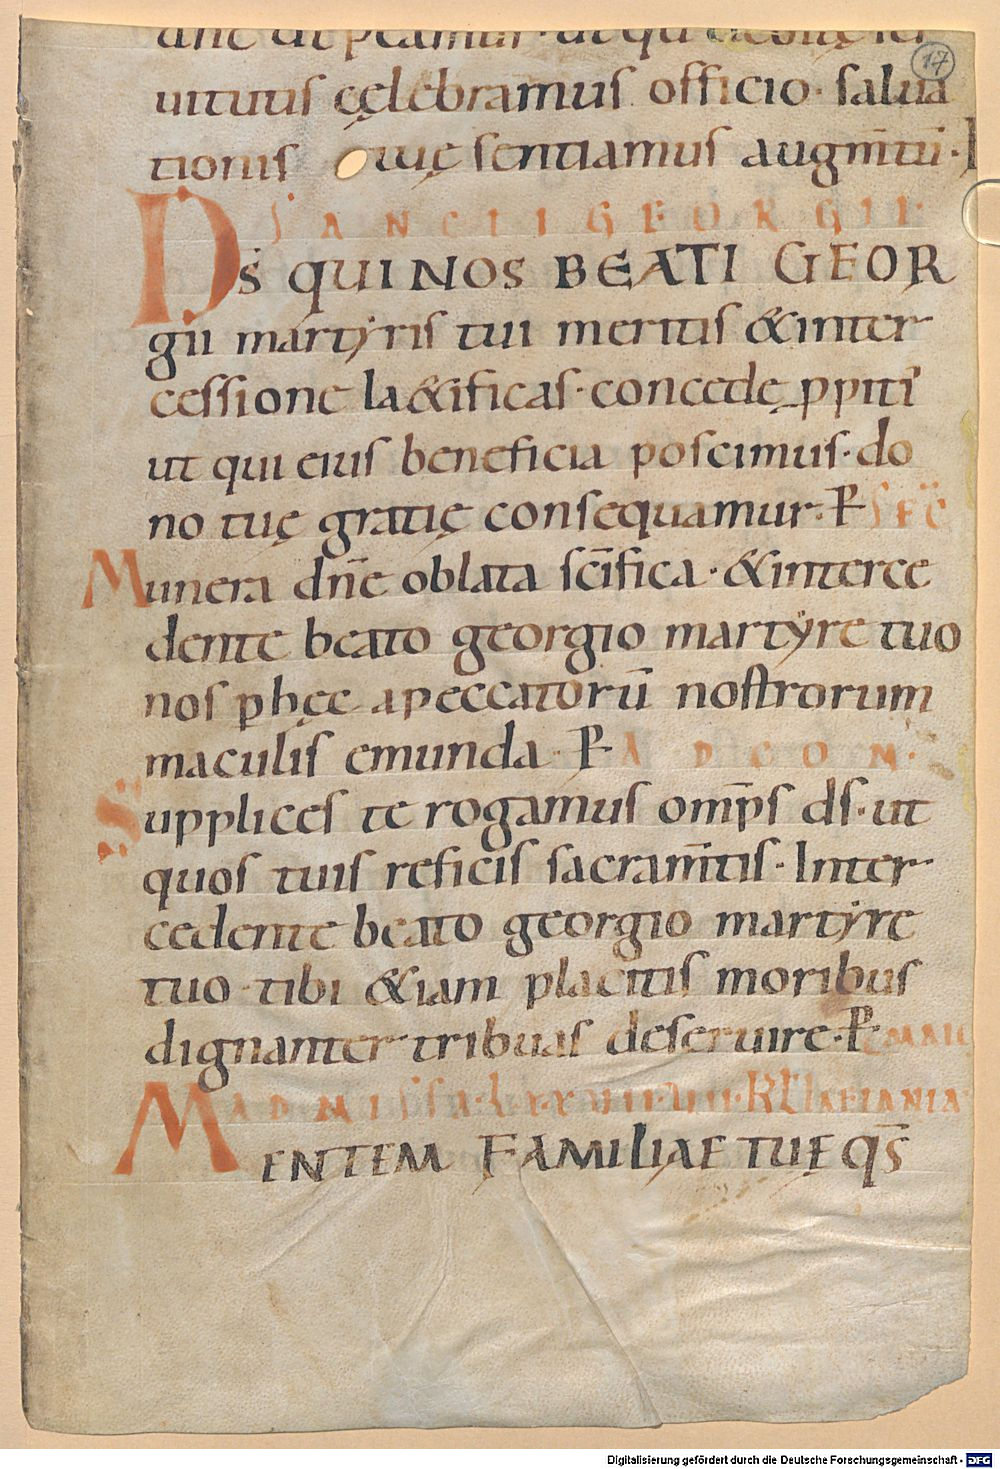 17
uirtutis cęlebramus officio · salua
tionis tuę sentiamus augm̅tu̅ ·
SANCTI GEORGII ·
DS̅ QUI NOS BEATI GEOR
gii martyris tui meritis & inter
cessione la&ificas · concede ꝓpiti'
ut qui eius beneficia poscimus · do
no tuę gratię consequamur · P SEC̅
Munera dn̅e oblata sc̅ifica · & interce
dente beato georgio martyre tuo
nos ꝑ hęc a peccatoru̅ nostrorum
maculis emunda · P AD CON̅ ·
Supplices te rogamus omp̅s ds̅ · ut
quos tuis reficis sacram̅tis · Inter
cedente beato georgio martyre
tuo · tibi &iam placitis moribus
dignanter tribuas deseruire · P
MENTEM FAMILIAE TUĘ QS̅
Digitalisierung gefördert durch die Deutsche Forschungsgemeinschaft - DFG